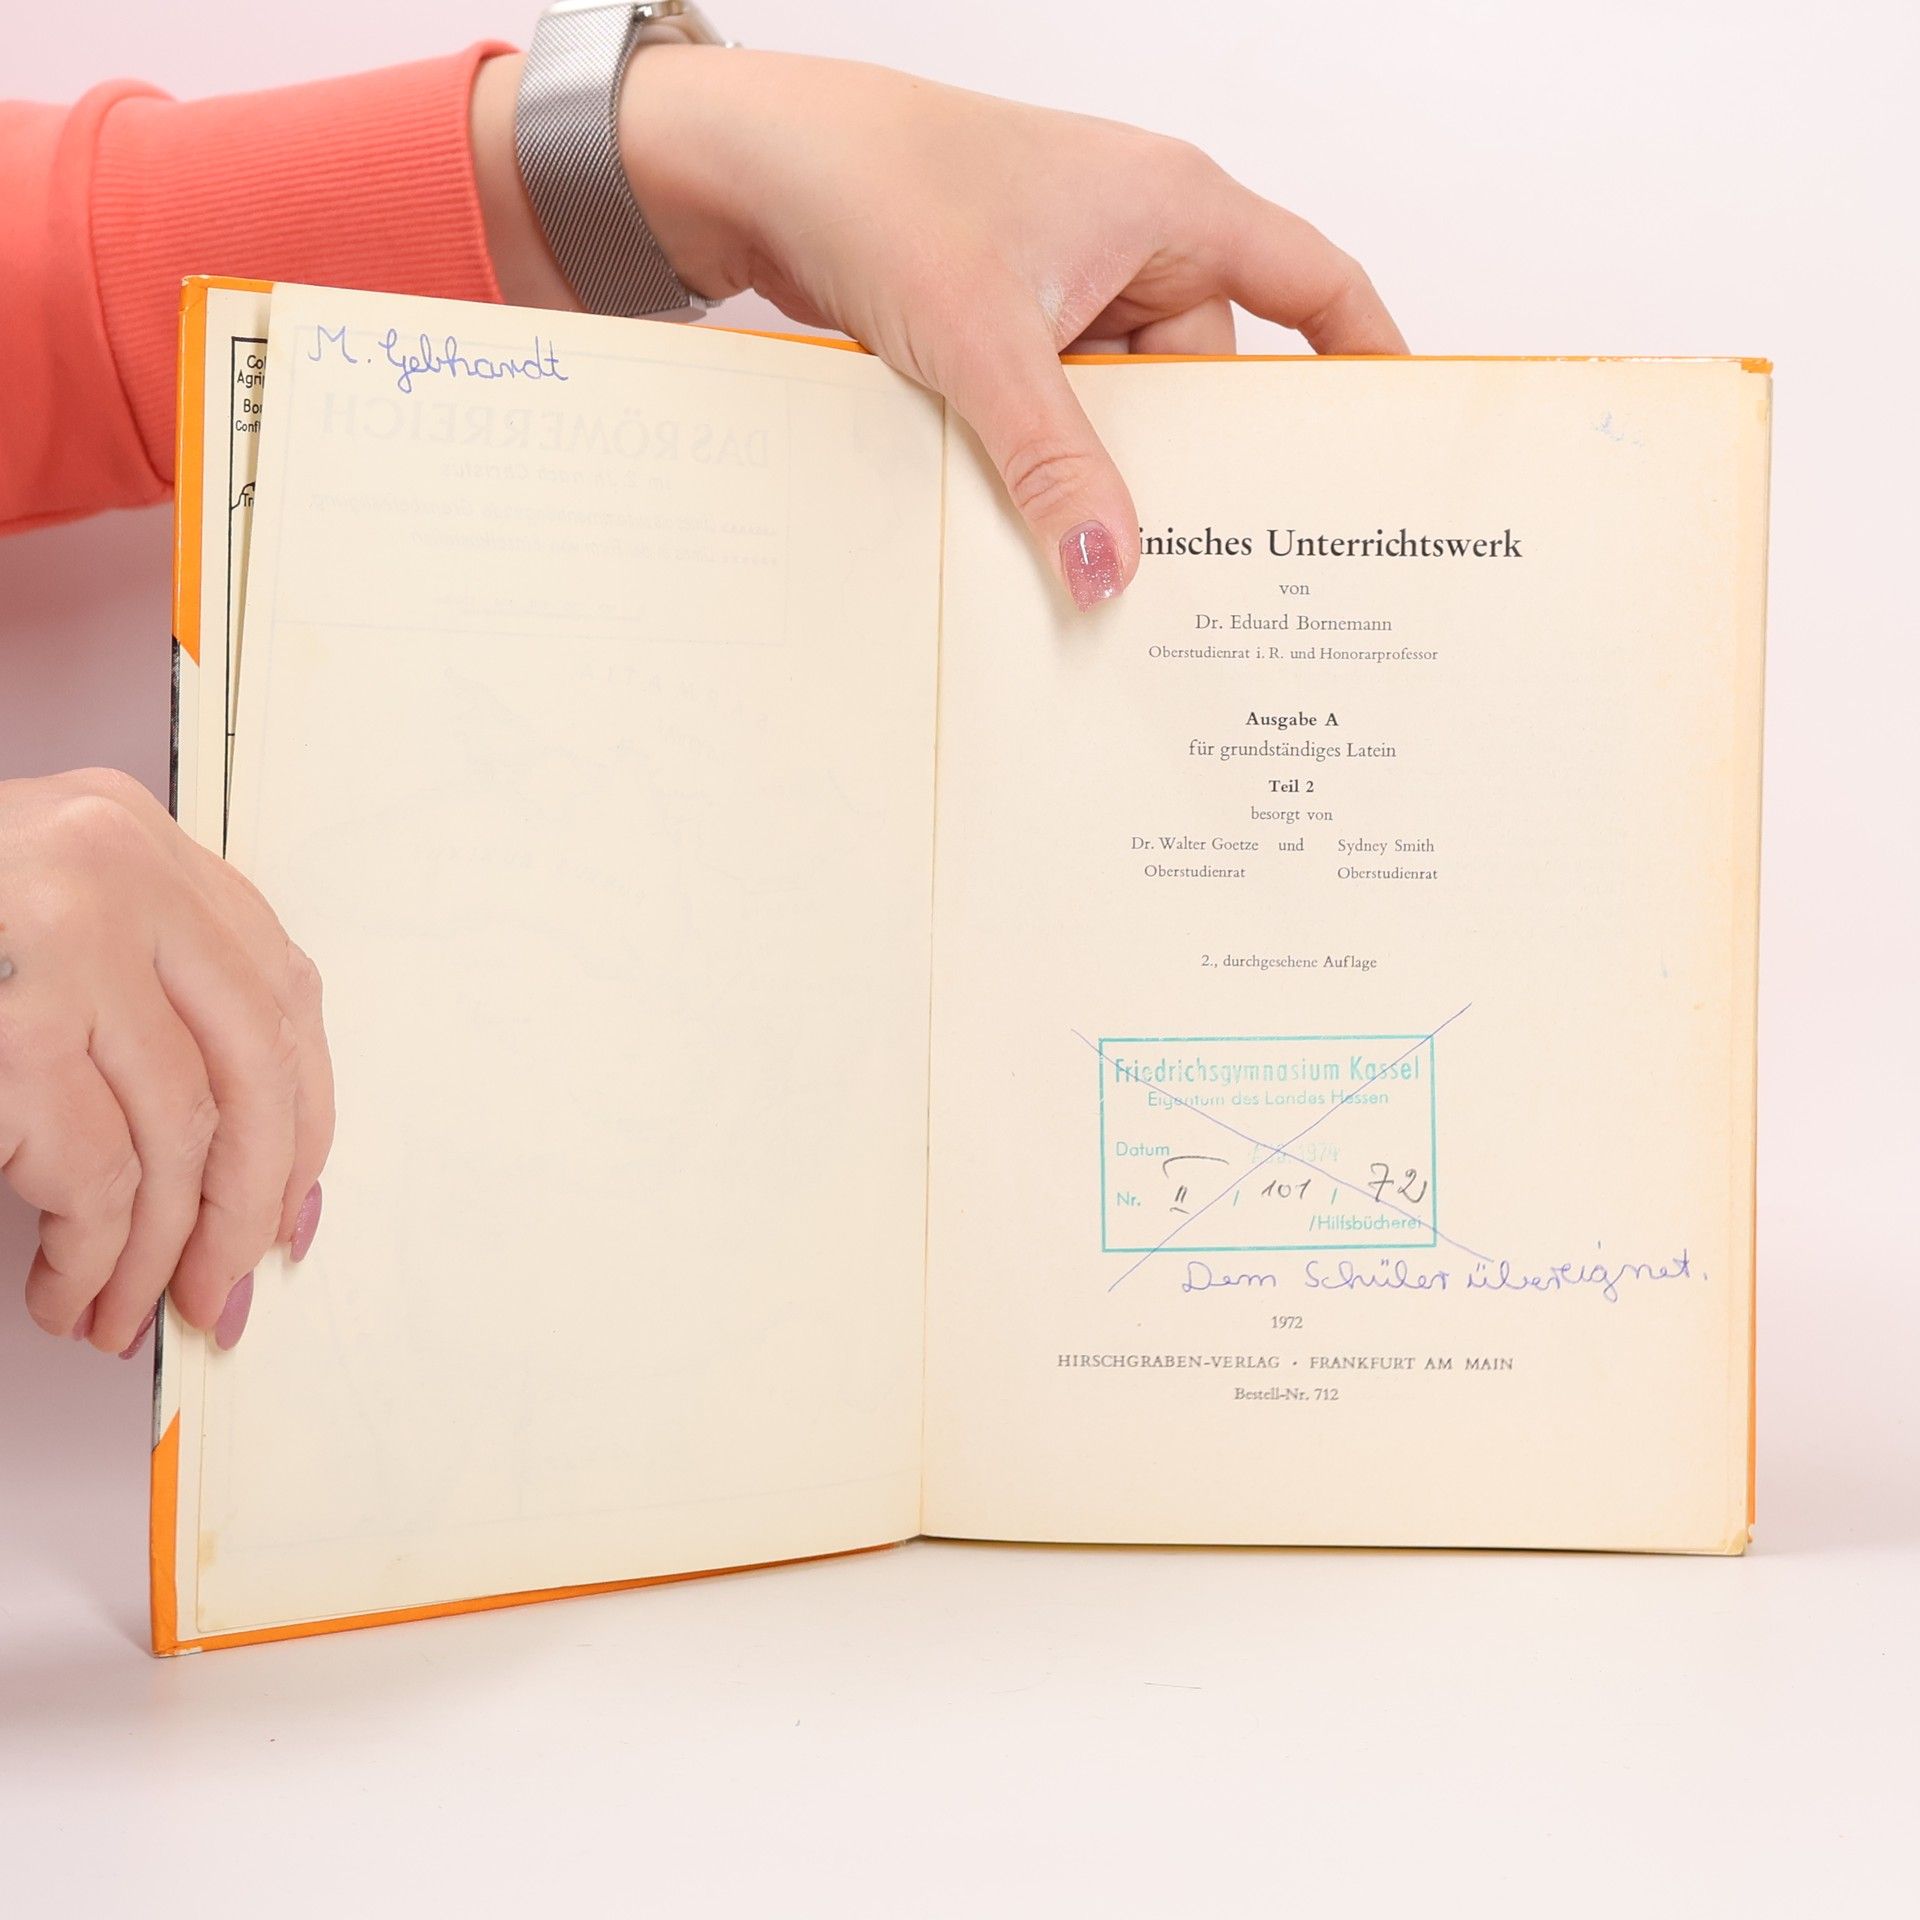 M. Gebhardt
DAS RÖMERREICH
im 2. Jh. nach Christus
inisches Unterrichtswerk
von
Dr. Eduard Bornemann
Oberstudienrat i. R. und Honorarprofessor
Ausgabe A
für grundständiges Latein
Teil 2
besorgt von
Dr. Walter Goetze und Sydney Smith
Oberstudienrat Oberstudienrat
2., durchgesehene Auflage
Friedrichsgymnasium Kassel
Eigentum des Landes Hessen
Datum 1974
Nr. II / 101 / 72
/Hilfsbücherei
Dem Schüler übereignet.
1972
HIRSCHGRABEN-VERLAG · FRANKFURT AM MAIN
Bestell-Nr. 712